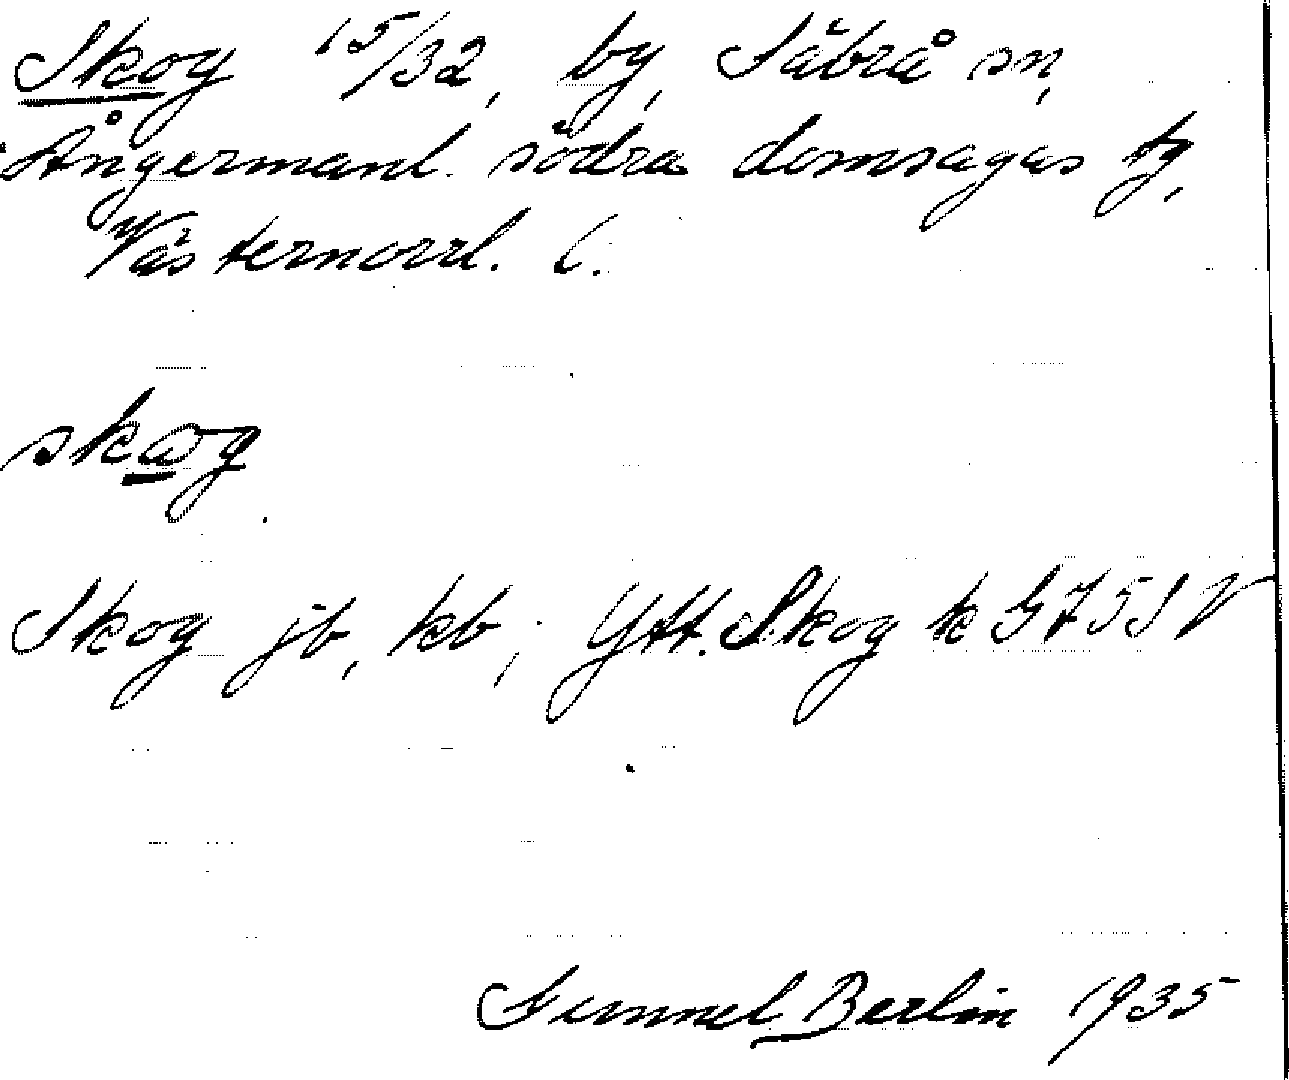 Skog 15/32, by, Säbrå sn,
Ångermanl. södra domsagas tg,
Västernorrl. l.
skog
Skog jb, kb; Ytt. Skog k G7 5SV
Gunnel Berlin 1935